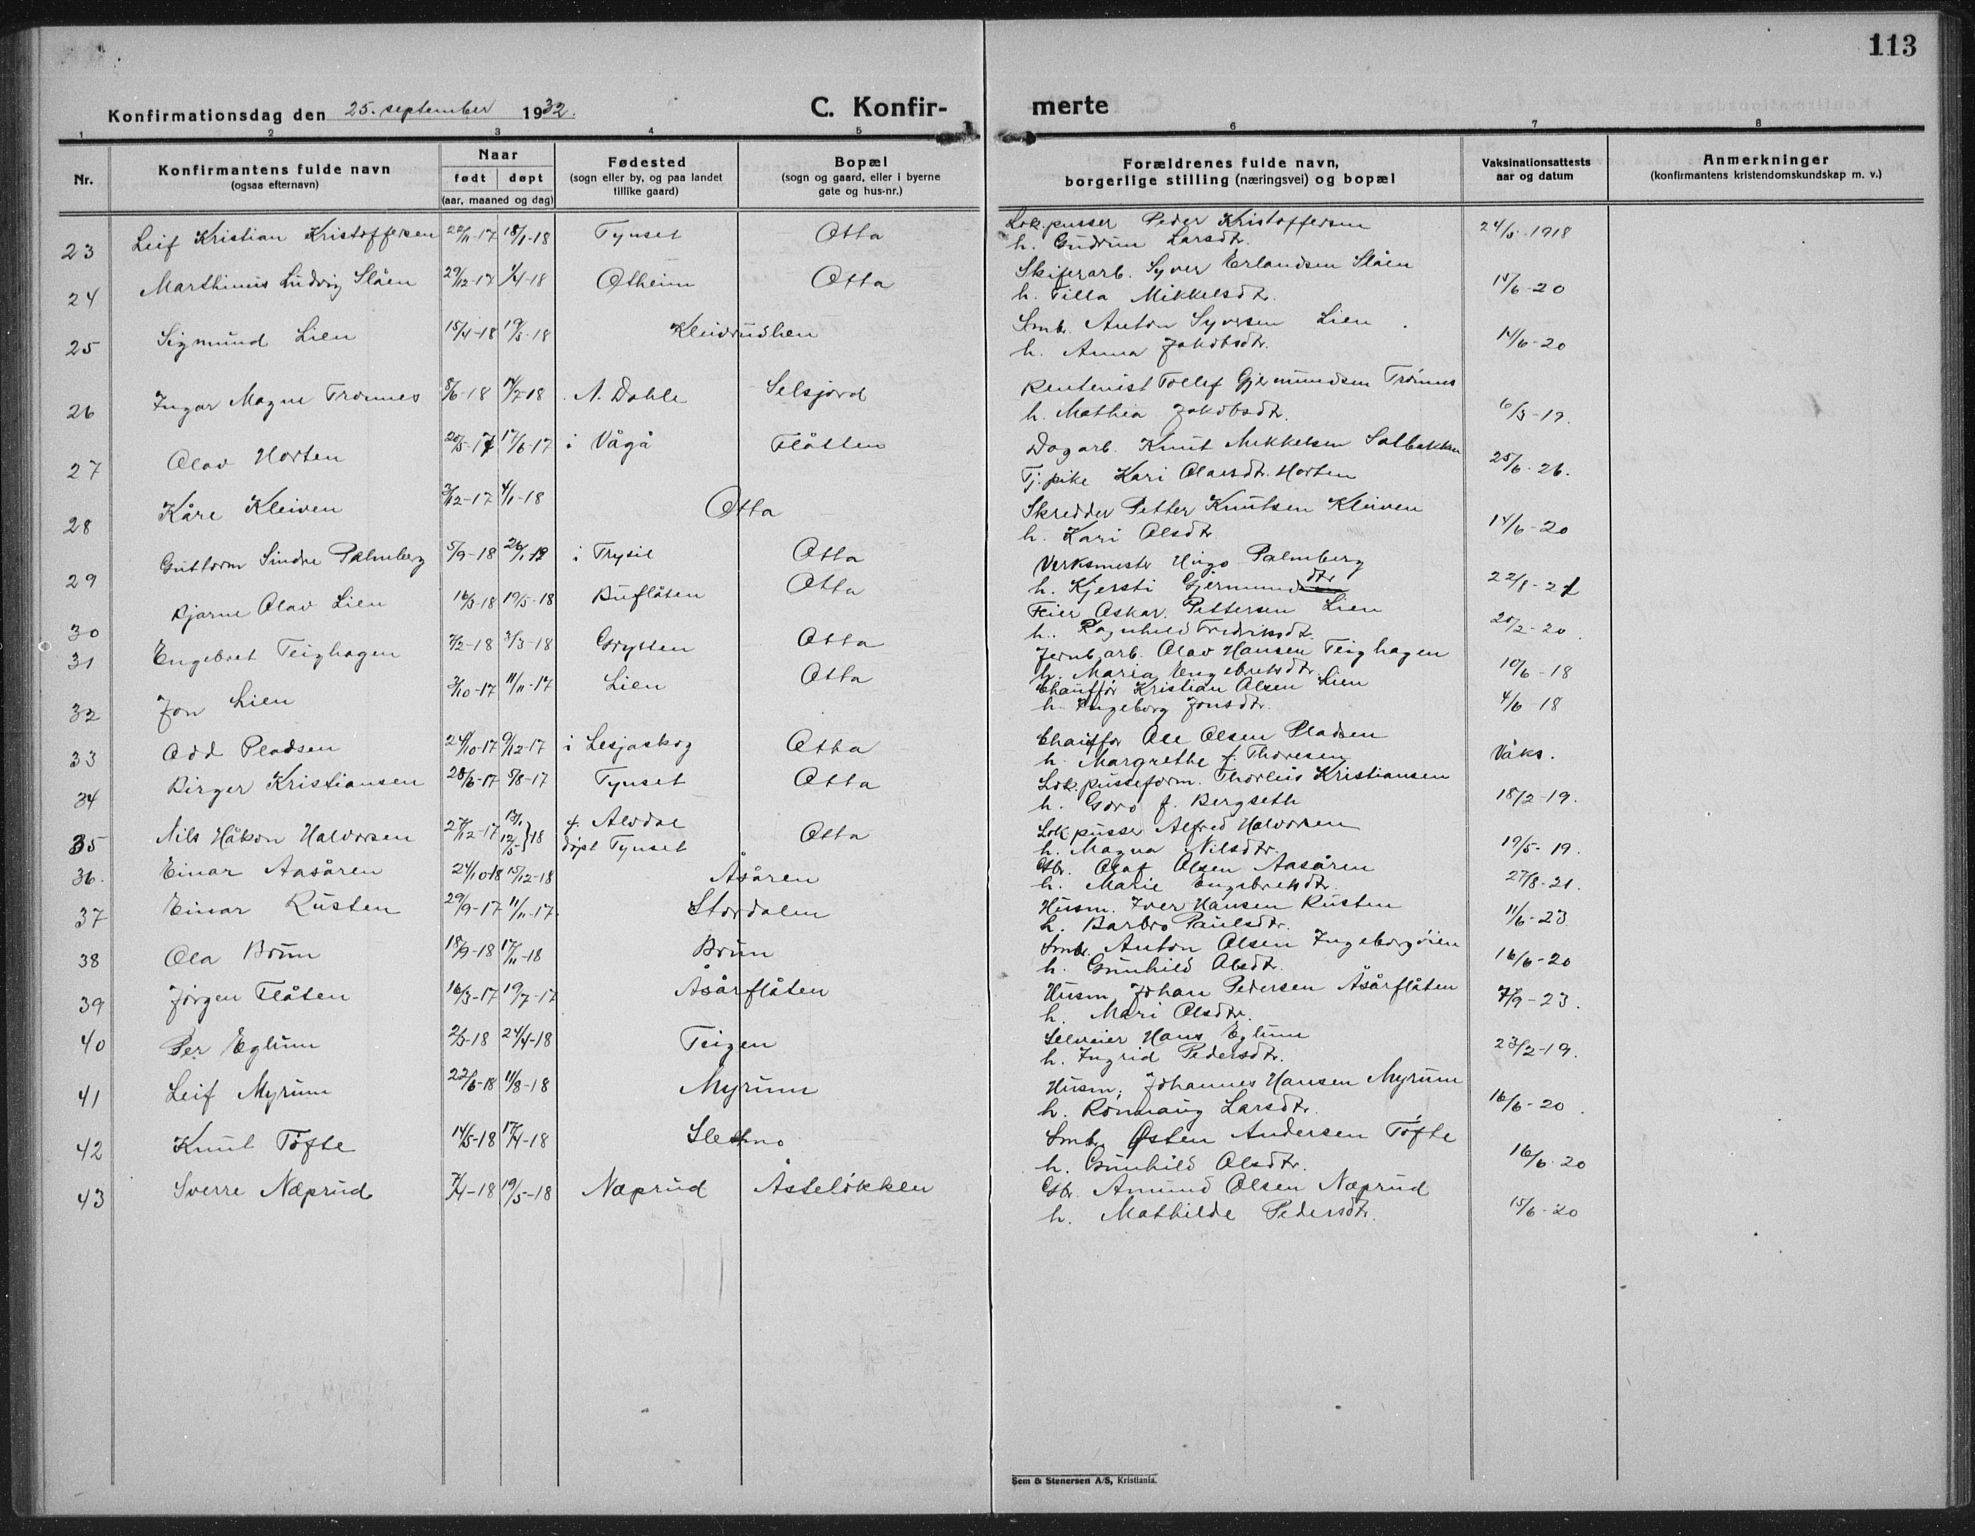 113
Konfirmationsdag den 25. september 1932.
C. Konfir-
merte
1 2 3 4 5 6 7 8
Nr.
Konfirmantens fulde navn
(ogsaa efternavn)
Naar
født døpt
(aar, maaned og dag)
Fødested
(sogn eller by, og paa landet
tillike gaard)
Bopæl
(sogn og gaard, eller i byerne
gate og hus-nr.)
Forældrenes fulde navn,
borgerlige stilling (næringsvei) og bopæl
Vaksinationsattests
aar og datum
Anmerkninger
(konfirmantens kristendomskundskap m. v.)
23 Leif Kristian Kristoffersen 22/11-17 18/1-18 Tynset Otta Lok.pusser Peder Kristoffersen 24/5-1918
h. Gudrun Larsdtr.
24 Marthinus Ludvig Slåen 29/12-17 1/4-18 Otheim Otta Skiferarb. Syver Erlandsen Slåen
h. Tilla Mikkelsdtr. 15/6-20
25 Sigmund Lien 15/4-18 19/5-18 Kleivrudlien Smb. Anton Syversen Lien.
h. Anna Jakobsdtr. 14/6-20
26 Ingar Magne Tromnes 8/6-18 14/7-18 N. Dahle Selsjord Rentenist Tollef Gjermundsen Tromnes
h. Mathea Jakobsdtr. 6/3-19.
27 Olav Horten 20/5-17 17/6-17 i Vågå Flåtten Dagarb. Knut Mikkelsen Solbakken
Tj.pike Kari Olavsdtr. Horten 25/6-26.
28 Kåre Kleiven 3/12-17 4/1-18 Otta Skredder Petter Knutsen Kleiven
h. Kari Olsdtr 14/6-20
29 Guttorm Sindre Palmberg 5/9-18 26/1-19 i Trysil Otta Verksmester Hugo Palmberg
h. Kjersti Gjermunddtr 22/1-21
30 Bjarne Olav Lien 16/3-18 19/5-18 Buflåten Otta Feier Oskar Pettersen Lien
h. Ragnhild Fredriksdtr. 20/2-20.
31 Engebret Teighagen 7/2-18 3/3-18 Grytten Otta Jernb.arb. Olav Hansen Teighagen
h. Maria Engebretsdtr. 10/6-18
32 Jon Lien 3/10-17 11/11-17 Lien Otta Chauffør Kristian Olsen Lien
h. Ingeborg Jonsdtr. 4/6-18
33 Odd Pladsen 24/10-17 9/12-17 i Lesjaskog Otta Chauffør Ole Olsen Pladsen
h. Margrethe f. Thoresen Vaks.
34 Birger Kristiansen 28/6-17 5/8-17 Tynset Otta Lok.pusseform. Thorleis Kristiansen
h. Goro f. Bergseth 18/2-19.
35 Nils Håkon Halvorsen 27/12-17 13/1 12/5 } 18 f. Alvdal
døpt Tynset Otta Lok.pusser Alfred Halvorsen
h. Magna Nilsdtr. 19/5-19.
36. Einar Aasåren 24/10-18 15/12-18 Åsåren Gbr. Olaf Olsen Aasåren
h. Marie Engebretsdtr. 27/8-21.
37 Einar Rusten 29/9-17 11/11-17. Stordalen Husm. Iver Hansen Rusten
h. Barbro Paulsdtr. 11/6-23
38 Ola Brun 18/9-18 17/11-18 Brun Smbr. Anton Olsen Ingeborgøien
h. Gunhild Olsdtr. 16/6-20
39 Jørgen Flåten 16/3-17 19/7-17 Åsårflåten Husm. Johan Pedersen Åsårflåten
h. Mari Olsdtr. 7/9-23.
40 Per Eglum 2/3-18 24/4-18 Teigen Selveier Hans Eglum
h. Ingrid Pedersdtr. 23/2-19.
41 Leif Myrum 22/6-18 11/8-18 Myrum Husm. Johannes Hansen Myrum
h. Rønnaug Larsdtr. 16/6-20.
42 Knut Tofte 14/3-18 17/4-18 Slethno Smbr. Østen Andersen Tofte
h. Gunhild Olsdtr. 16/6-20
43 Sverre Næprud 7/4-18 19/5-18 Næprud Åsteløkken Gbr. Amund Olsen Næprud
h. Mathilde Pedersdtr. 15/6-20
Sem & Stenersen A/S, Kristiania.